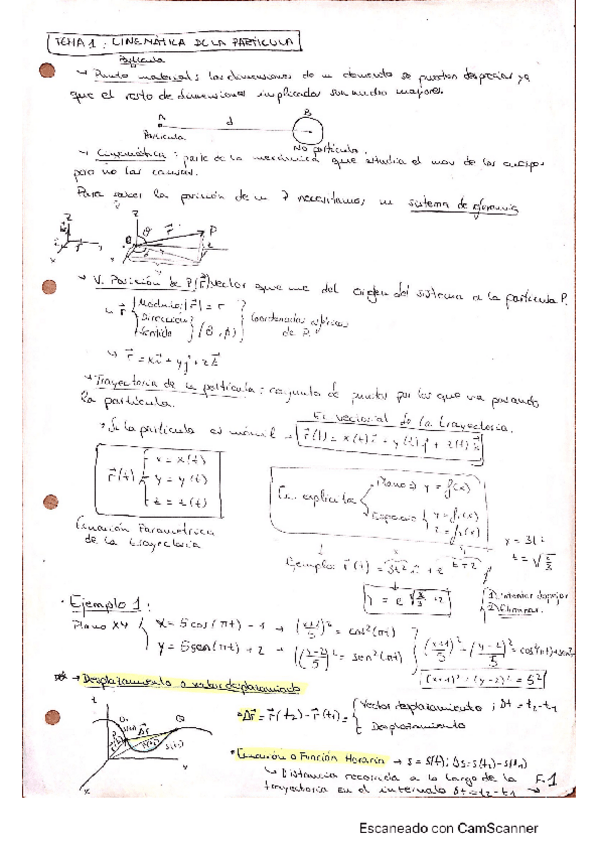 TEMA 1: CINEMÁTICA DE LA PARTÍCULA
Partícula
Punto material: las dimensiones de un elemento se pueden despreciar ya
que el resto de dimensiones implicadas son mucho mayores.
A d B
Partícula
No partícula.
Cinemática: parte de la mecánica que estudia el mov de los cuerpos
pero no las causas.
Para saber la posición de un P necesitamos un sistema de referencia
V. Posición de P (r⃗) vector que une del origen del sistema a la partícula P.
r⃗ { Módulo: |r⃗| = r
Dirección
Sentido } (θ, φ) } Coordenadas esféricas
de P.
r⃗ = xi⃗ + yj⃗ + zk⃗
Trayectoria de la partícula: conjunto de puntos por los que va pasando
la partícula.
Ec vectorial de la trayectoria.
Si la partícula es móvil → r⃗(t) = x(t)i⃗ + y(t)j⃗ + z(t)k⃗
r⃗(t) { x = x(t)
y = y(t)
z = z(t)
Ecuación Paramétrica
de la trayectoria
Ec. explícita
Plano → y = f(x)
Espacio { y = f₁(x)
z = f₂(x)
Ejemplo: r⃗(t) =
Ejemplo 1:
Plano XY { x = 5cos(πt) - 1 → (x+1/5)² = cos²(πt)
y = 5sen(πt) + 2 → (y-2/5)² = sen²(πt)
(x+1)² + (y-2)² = 5²
Desplazamiento o vector desplazamiento
Δr⃗ = r⃗(t₂) - r⃗(t₁) = { Vector desplazamiento ; Δt = t₂-t₁
Desplazamiento
Ecuación o Función Horaria → s = s(t); Δs = s(t₂) - s(t₁)
Distancia recorrida a lo largo de la
trayectoria en el intervalo Δt = t₂-t₁
F.1
Escaneado con CamScanner